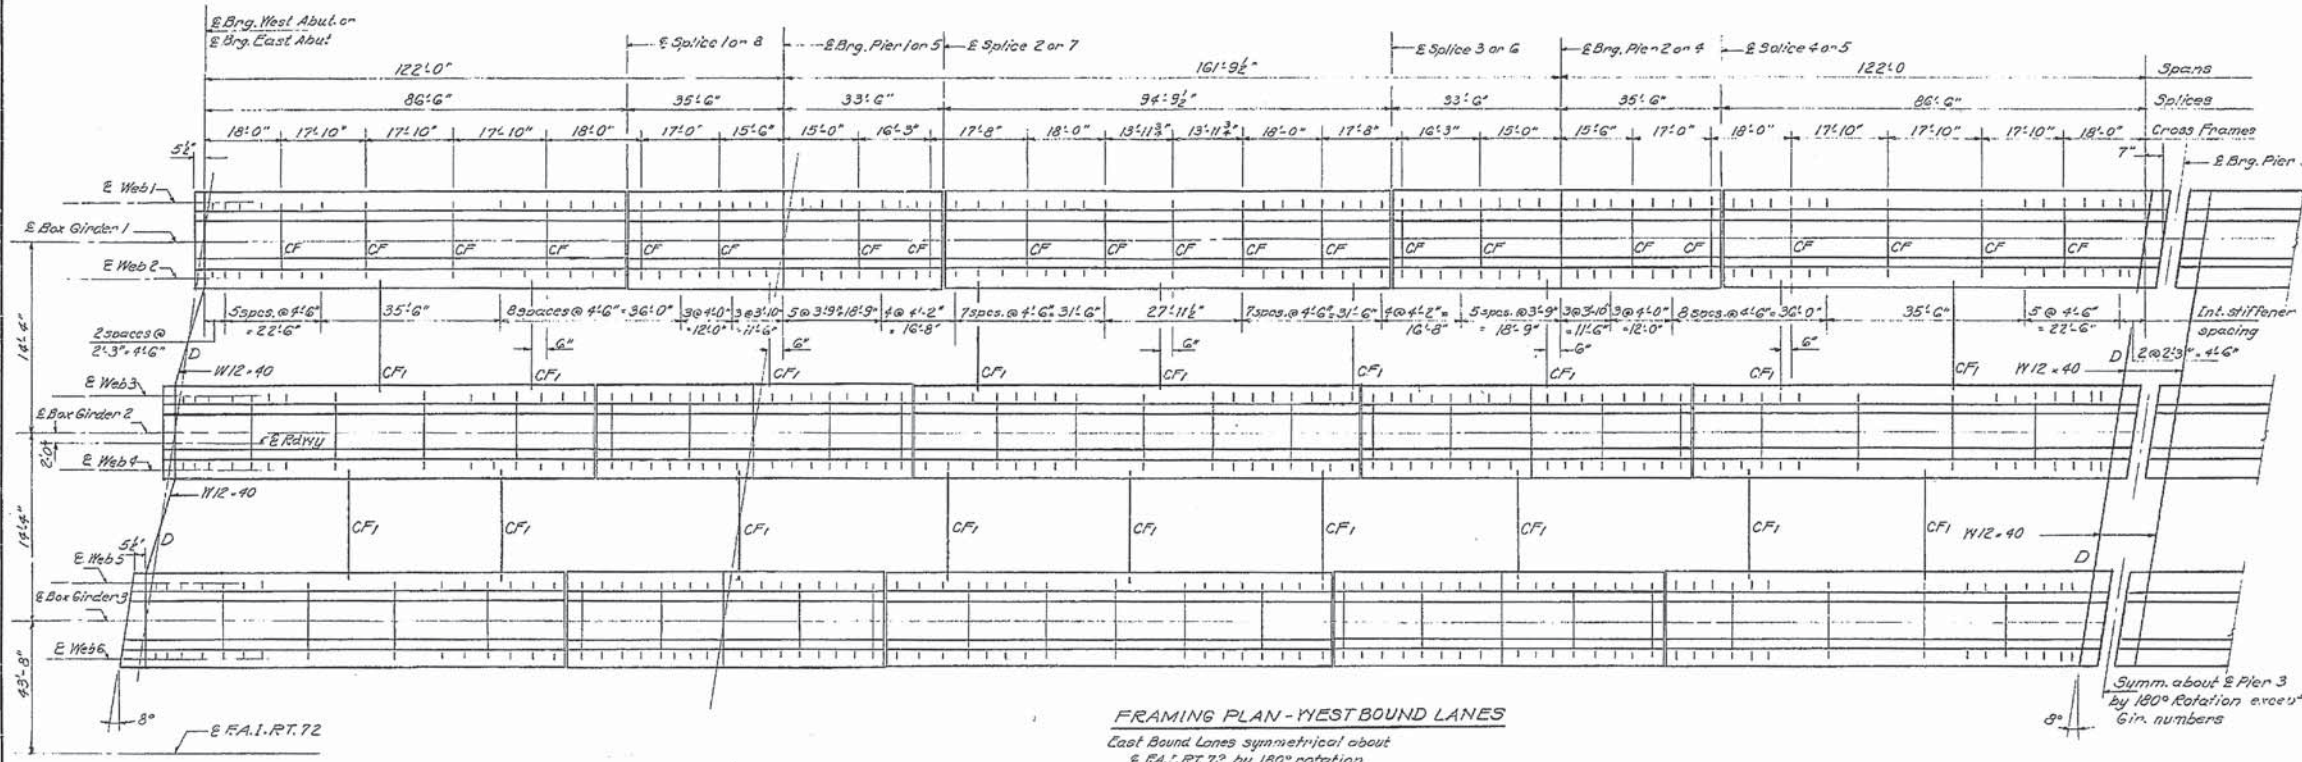 ℄ Brg. West Abut. or
℄ Brg. East Abut
℄ Splice 1 or 8
℄ Brg. Pier 1 or 5
℄ Splice 2 or 7
℄ Splice 3 or 6
℄ Brg. Pier 2 or 4
℄ Splice 4 or 5
122'-0" 161'-9½" 122'-0 Spans
86'-6" 35'-6" 33'-6" 94'-9½" 33'-6" 35'-6" 86'-6" Splices
18'-0" 17'-10" 17'-10" 17'-10" 18'-0" 17'-0" 15'-6" 15'-0" 16'-3" 17'-8" 18'-0" 13'-11¾" 13'-11¾" 18'-0" 17'-8" 16'-3" 15'-0" 15'-6" 17'-0" 18'-0" 17'-10" 17'-10" 17'-10" 18'-0" Cross Frames
5½"
7"
℄ Brg. Pier
℄ Web 1
℄ Box Girder 1
CF CF CF CF CF CF CF CF CF CF CF CF CF CF CF CF CF CF CF CF CF
℄ Web 2
5 spcs. @ 4'-6" = 22'-6"
35'-6"
8 spaces @ 4'-6" = 36'-0"
3 @ 4'-0" = 12'-0"
3 @ 3'-10 = 11'-6"
5 @ 3'-9" = 18'-9"
4 @ 4'-2" = 16'-8"
7 spcs. @ 4'-6" = 31'-6"
27'-11½"
7 spcs. @ 4'-6" = 31'-6"
4 @ 4'-2" = 16'-8"
5 spcs. @ 3'-9" = 18'-9"
3 @ 3'-10 = 11'-6"
3 @ 4'-0" = 12'-0"
8 spcs. @ 4'-6" = 36'-0"
35'-6"
5 @ 4'-6" = 22'-6"
Int. stiffener
spacing
2 spaces @
2'-3" = 4'-6"
14'-4"
6" 6" 6" 6"
D
W12×40
D
2 @ 2'-3" = 4'-6"
W12×40
CF1 CF1 CF1 CF1 CF1 CF1 CF1 CF1 CF1
℄ Web 3
℄ Box Girder 2
℄ Rdwy
2'-0"
℄ Web 4
W12×40
14'-4"
CF1 CF1 CF1 CF1 CF1 CF1 CF1 CF1 CF1
W12×40
D
5½"
D
℄ Web 5
℄ Box Girder 3
℄ Web 6
43'-8"
8°
℄ F.A.I. RT. 72
8°
Symm. about ℄ Pier 3
by 180° Rotation except
Gir. numbers
FRAMING PLAN - WEST BOUND LANES
East Bound Lanes symmetrical about
℄ F.A.I. RT. 72 by 180° rotation